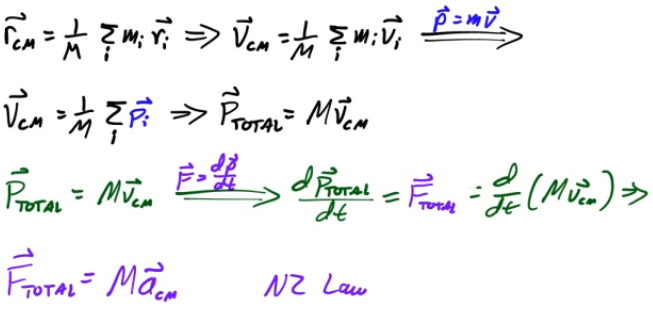 r⃗_CM = 1/M Σ_i m_i r⃗_i ⇒ V⃗_CM = 1/M Σ_i m_i v⃗_i ⟹ (p⃗ = mv⃗)
V⃗_CM = 1/M Σ_i p⃗_i ⇒ P⃗_TOTAL = M v⃗_CM
P⃗_TOTAL = M v⃗_CM ⟹ (F⃗ = dp⃗/dt) dP⃗_TOTAL/dt = F⃗_TOTAL = d/dt (M v⃗_CM) ⇒
F⃗_TOTAL = M a⃗_CM N2 Law